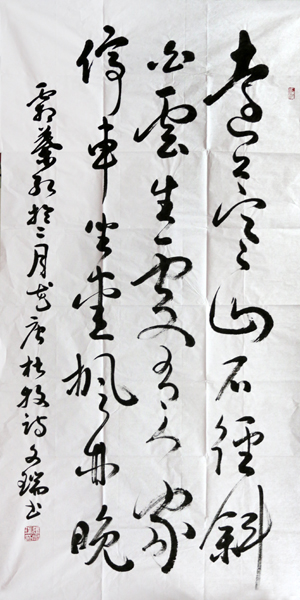 遠上寒山石徑斜
白雲生處有人家
停車坐愛楓林晚
霜葉紅於二月花唐杜牧詩文瑞书